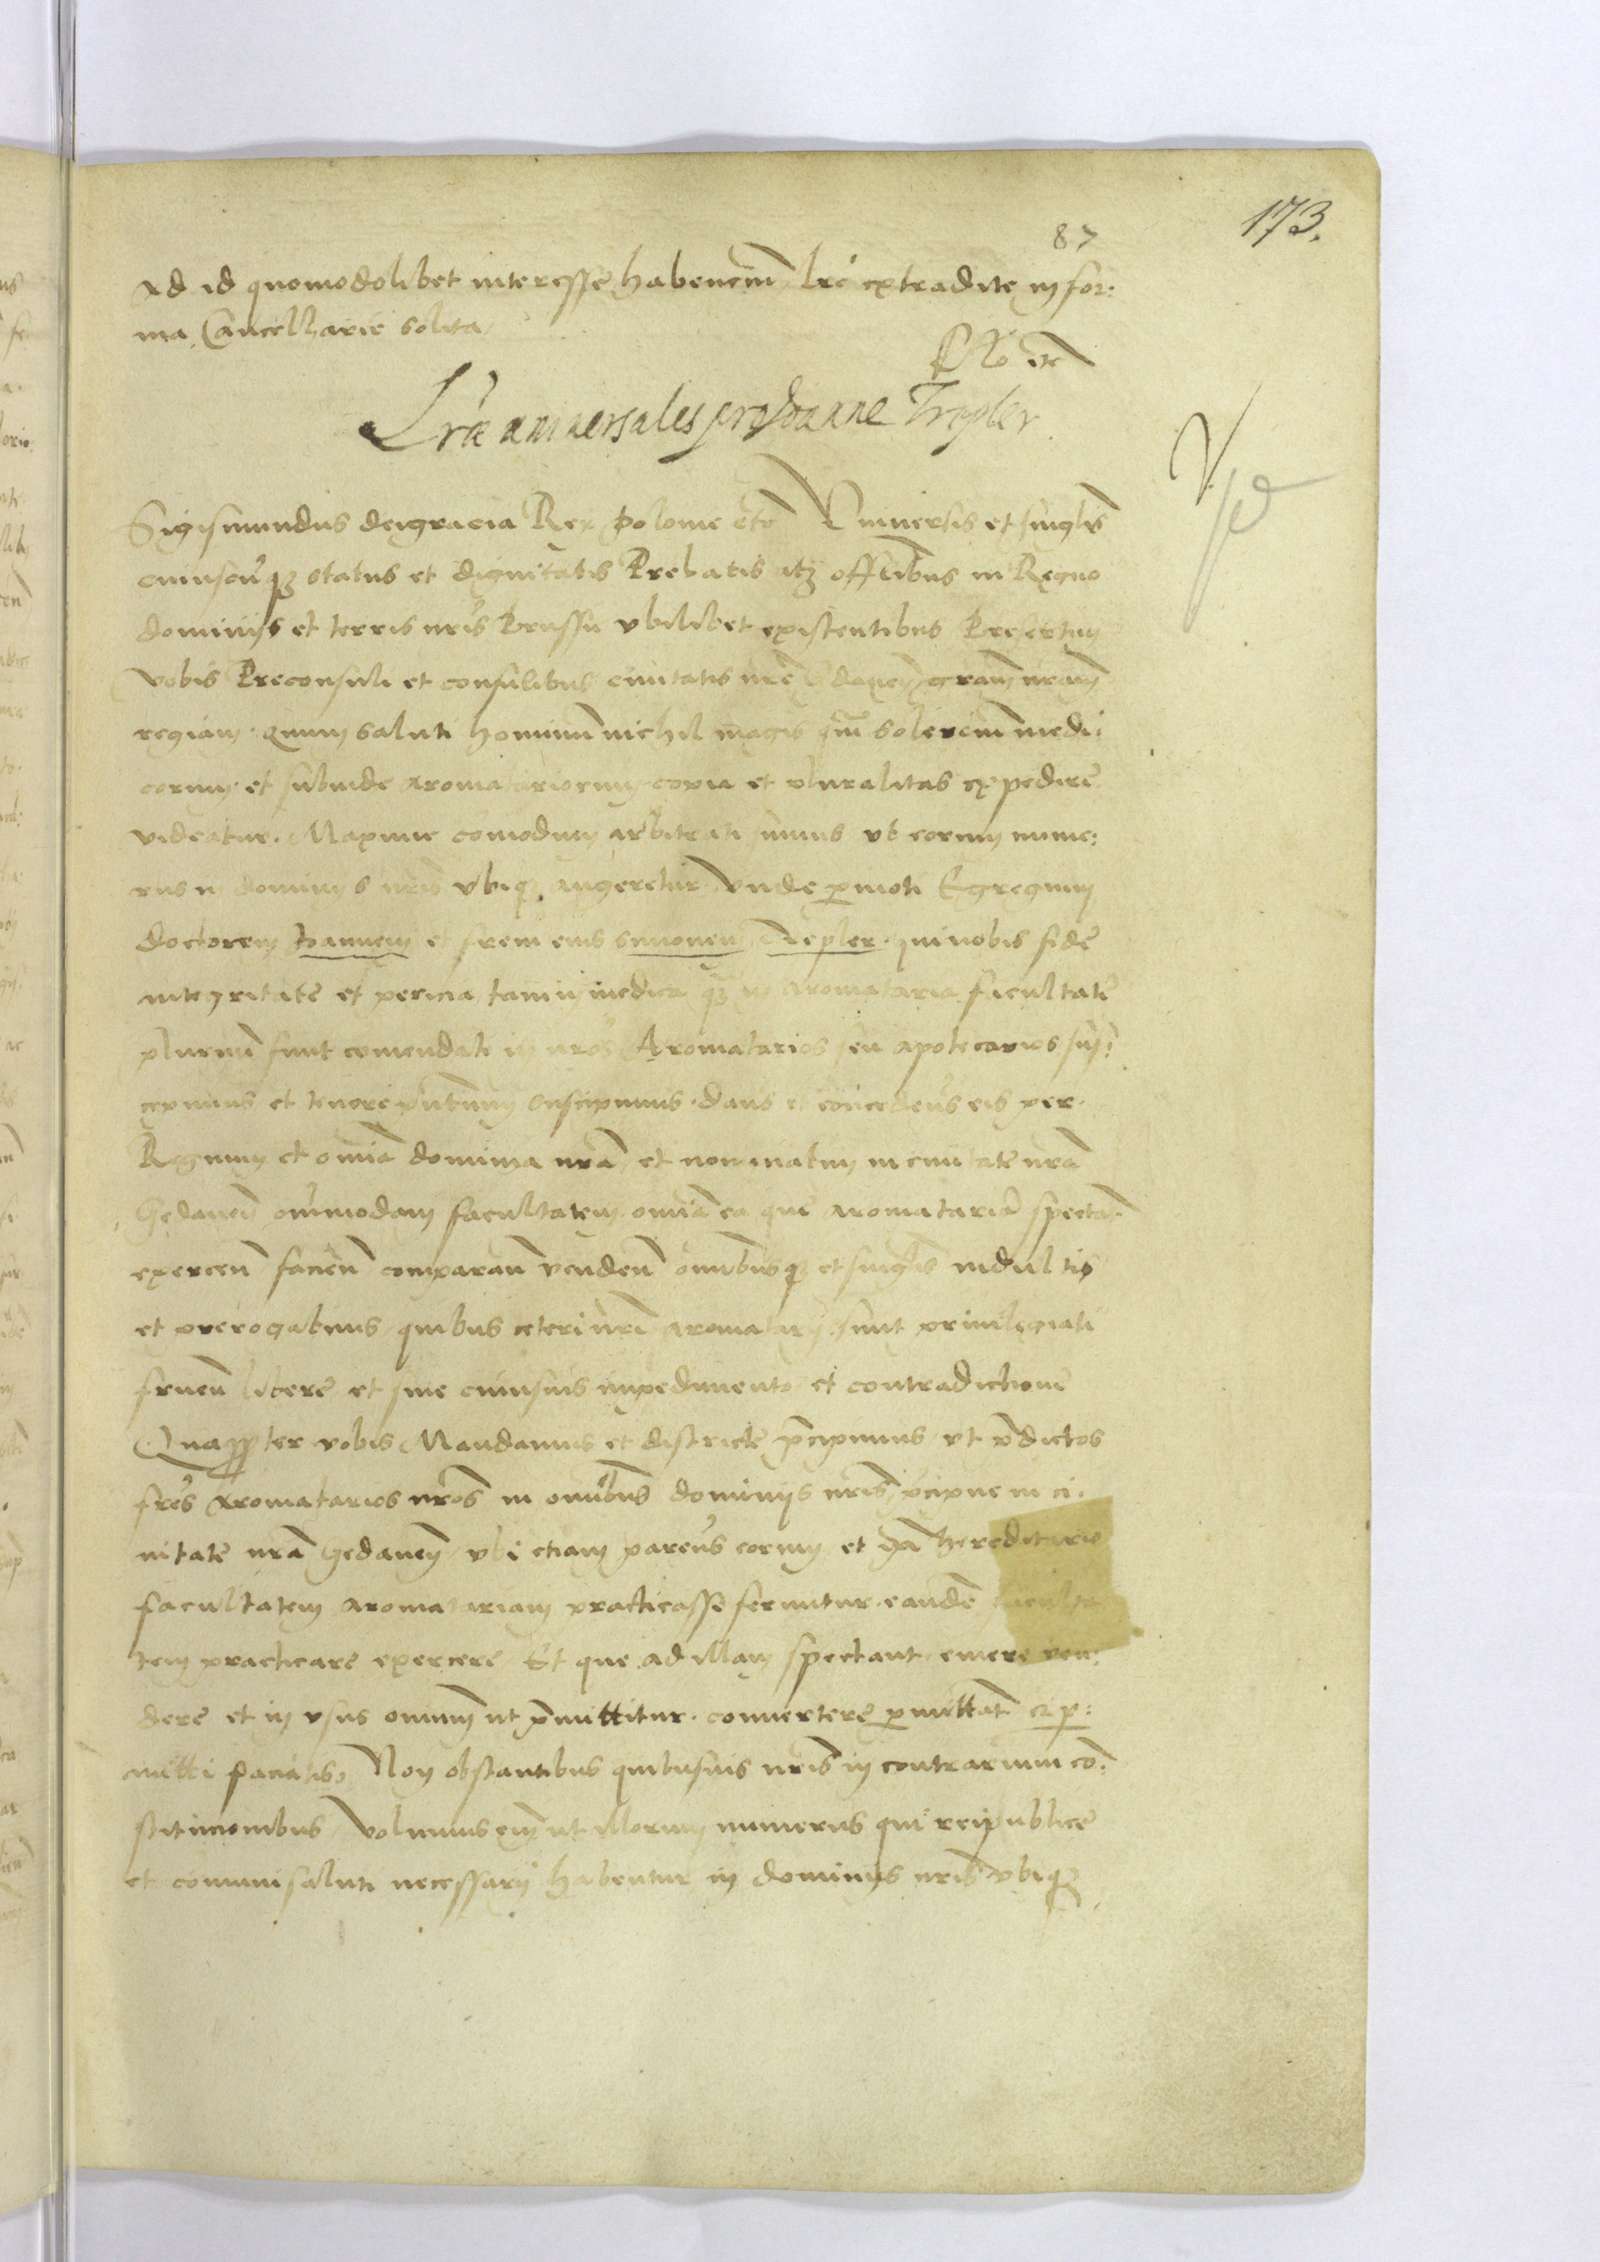 173.
87
Ad id quomodolibet interesse habencium lre extradite in for:
ma Cancellarie solita
Rlo etc
Lrae universales pro Joanne Trepler
Sigismundus dei gracia Rex polonie etc Universis et singlis
cuiuscuqz status et dignitatis Prelatis atz offcibus in Regno
dominijs et terris nris Prussie ubilibet existentibus Presertim
vobis Preconsuli et consulibus civitatis nre Gdanen gram nram
regiam. Quum saluti hominum nichil magis qm solercium medi:
corum et subinde aromatariorum copia et pluralitas expedire
videatur. Maxime comodum arbitrati sumus ut eorum nume:
rus in dominijs nris ubiqz augeretur Unde pmoti Egregium
doctorem Joannem et frem eius Simonem Repler qui nobis fide
integritate et pericia tam in medica qz in aromataria facultate
plurimu sunt comendati in nros Aromatarios seu apotecarios sus:
cepimus et tenore pntium suscipimus dans et concedens eis per
Regnum et omia dominia nra et nominatim in civitate nra
Gedanen omimodam facultatem omia ea que aromataria spectat
exercen facien comparan venden omibusqz et singlis indultis
et prerogativis quibus ceteri nri aromatarij sunt privilegiati
fruen libere et sine cuiusvis impedimento et contradictione
Quappter vobis Mandamus et districte pcipimus ut pdictos
fres Aromatarios nros in omibus dominijs nris pcipue in ci:
vitate nra Gedanen ubi etiam parens eorum et hereditario
facultatem aromatariam practicasse feruntur eande faculta
tem practicare exercere Et que ad illam spectant emere ven:
dere et in usus omium ut pmittitur convertere pmittat et p:
mitti faciatis Non obstantibus quibusvis nris in contrarium co:
stitucionibus Volumus em ut illorum numerus qui reipublice
et comuni saluti necessarij habentur in dominijs nris ubiqz